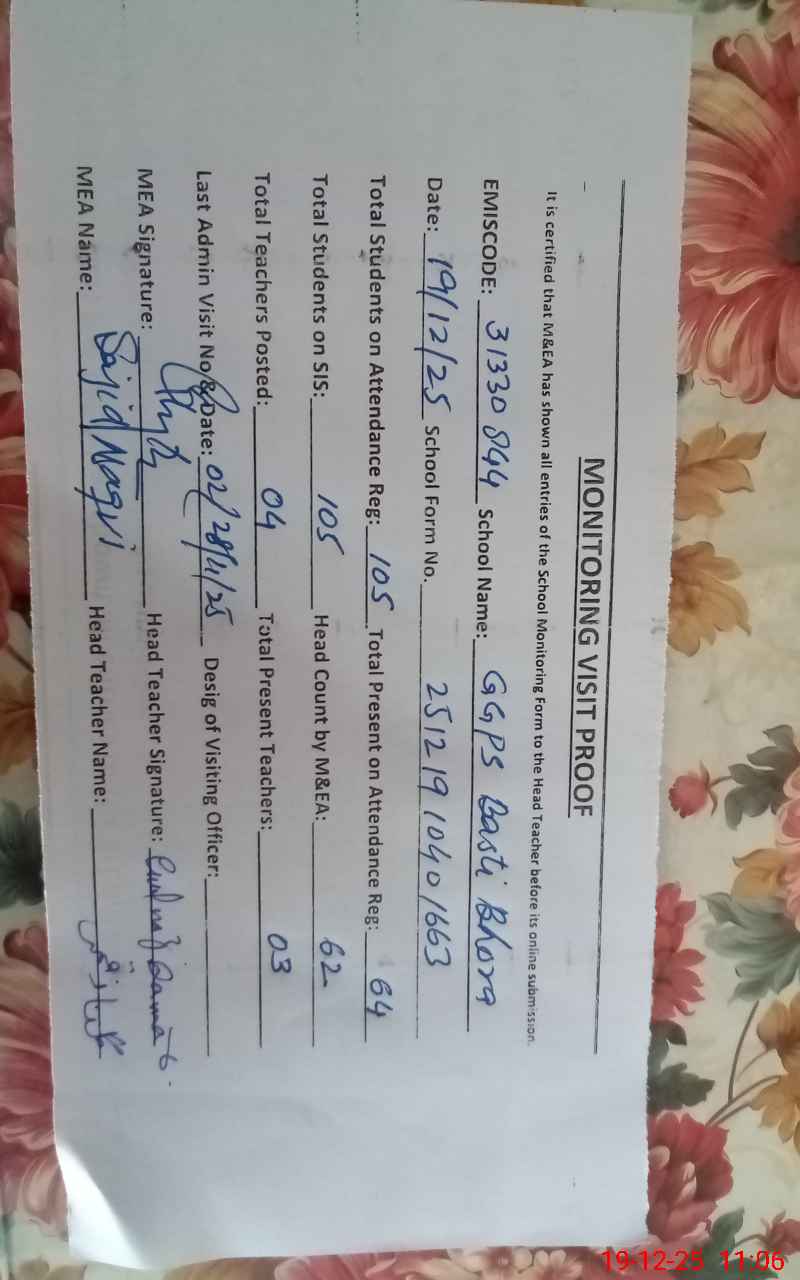 MONITORING VISIT PROOF
It is certified that M&EA has shown all entries of the School Monitoring Form to the Head Teacher before its online submission.
EMISCODE: 31330844 School Name: GGPS Basti Bhora
Date: 19/12/25 School Form No. 25121910401663
Total Students on Attendance Reg: 105 Total Present on Attendance Reg: 64
Total Students on SIS: 105 Head Count by M&EA: 62
Total Teachers Posted: 04 Total Present Teachers: 03
Last Admin Visit No & Date: 02/28/11/25 Desig of Visiting Officer:
MEA Signature: Head Teacher Signature:
MEA Name: Sajid Naqvi Head Teacher Name:
19-12-25 11:06